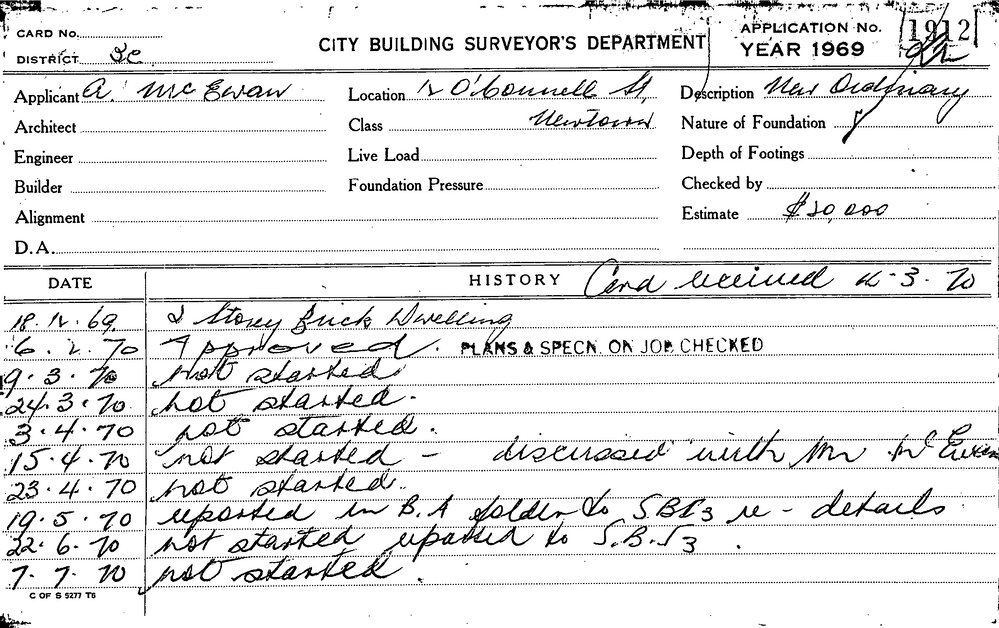 CARD No.
DISTRICT
CITY BUILDING SURVEYOR'S DEPARTMENT
APPLICATION No. 1912
YEAR 1969
Applicant A. Mc Ewan
Location O'Connell St,
Newtown
Description New Ordinary
Architect
Class
Nature of Foundation
Engineer
Live Load
Depth of Footings
Builder
Foundation Pressure
Checked by
Alignment
Estimate $20,000
D.A.
DATE
HISTORY Card received 4-3-70
18.12.69 2 Storey Brick Dwelling
6.2.70 Approved. PLANS & SPECN. ON JOB CHECKED
9.3.70 not started
24.3.70 not started.
3.4.70 not started.
15.4.70 not started - discussed with Mr McEwan
23.4.70 not started.
19.5.70 reported in B.A folder to re-details
22.6.70 not started reported to
7.7.70 not started.
C OF S 5277 T6